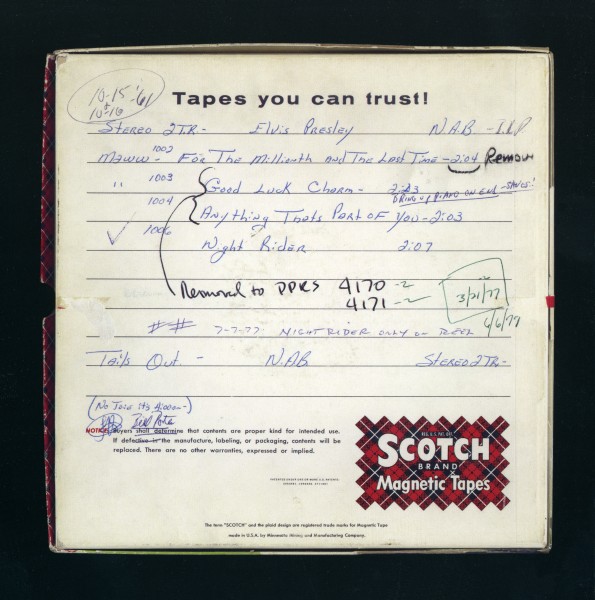 10-15-'61
+
10-16
Tapes you can trust!
Stereo 2TR- Elvis Presley N.A.B -
M2WW- 1002 For The Millionth and The Last Time - 2:04 Remov
" 1003 Good Luck Charm - 2:23
BRING UP PIANO ON END
1004 Anything Thats Part of You - 2:03
1006 Night Rider 2:07
Removed to DPRS 4170 -2
4171 -2
3/21/77
6/6/77
## 7-7-77: NIGHT RIDER ONLY ON REEL
Tails Out - N.A.B. Stereo 2TR-
(No Tone
NOTICE: Buyers shall determine that contents are proper kind for intended use.
If defective in the manufacture, labeling, or packaging, contents will be
replaced. There are no other warranties, expressed or implied.
SCOTCH
BRAND
Magnetic Tapes
The term "SCOTCH" and the plaid design are registered trade marks for Magnetic Tape
made in U.S.A. by Minnesota Mining and Manufacturing Company.